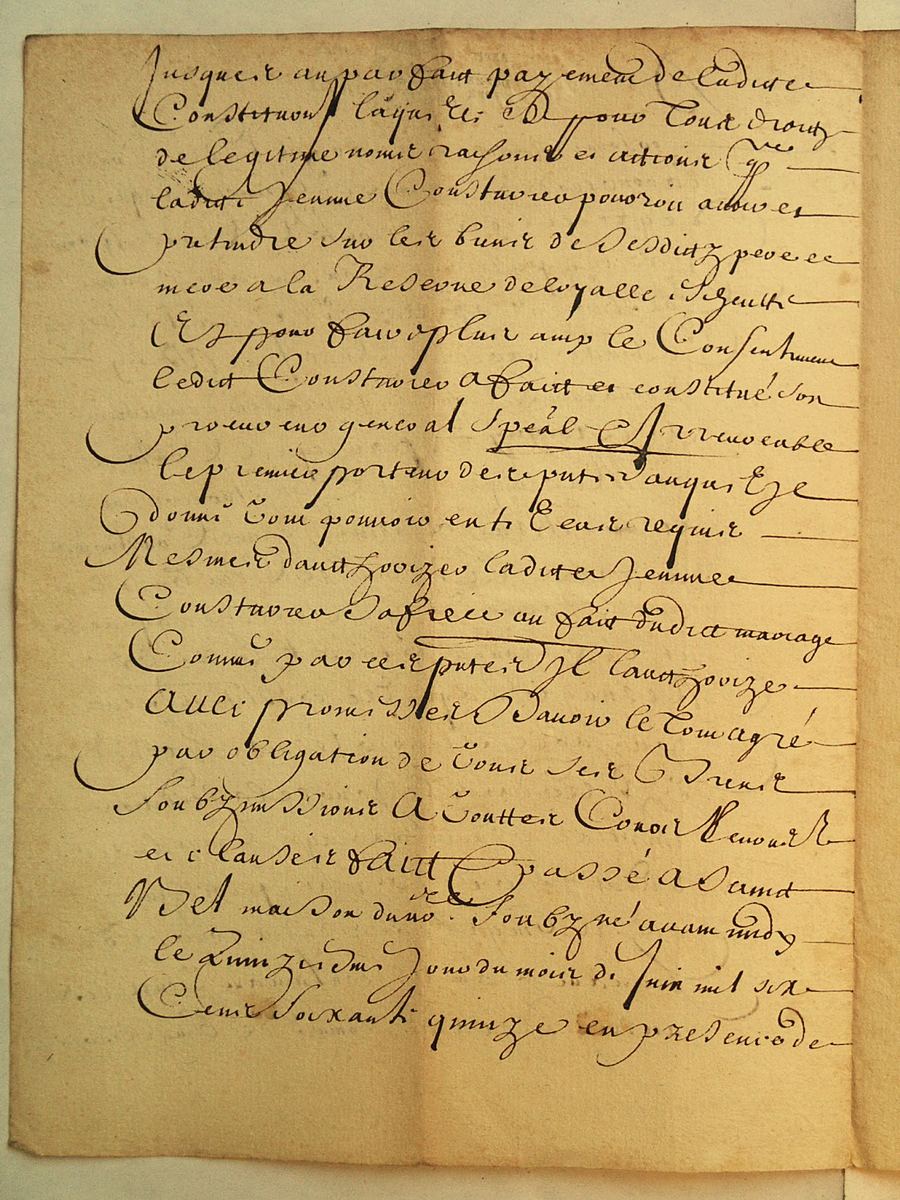 Jusques au parfaict payement de ladicte
Constitution laquelle est pour tout droictz
de legitime noms raisons et actions q
ladicte Jeanne Consturier pouroit avoir et
pretendre sur les biens de sesdictz pere et
mere a la Reserve de loyalle
Et pour faire plus amp le Consentement
ledict Consturier a faict et constitué son
procureur general spéal Et Irrevocable
le premier porteur des pntes auquel Il
donne tout pouvoir en tel cas requis
Mesmes d'authorizer ladicte Jeanne
Consturier sa fille au fait dudict mariage
Comme par ces pntes Il lauthorize
avec promesses D'avoir le tout agré
par obligation de tous ses Biens
soubzmissions A touttes Cours Renoncer
et clauses faict Et passé a Sainct
Bel maison du no.re soubzné avant midy
le quinziesme Jour du mois de Juin mil six
Cens soixante quinze en presence de